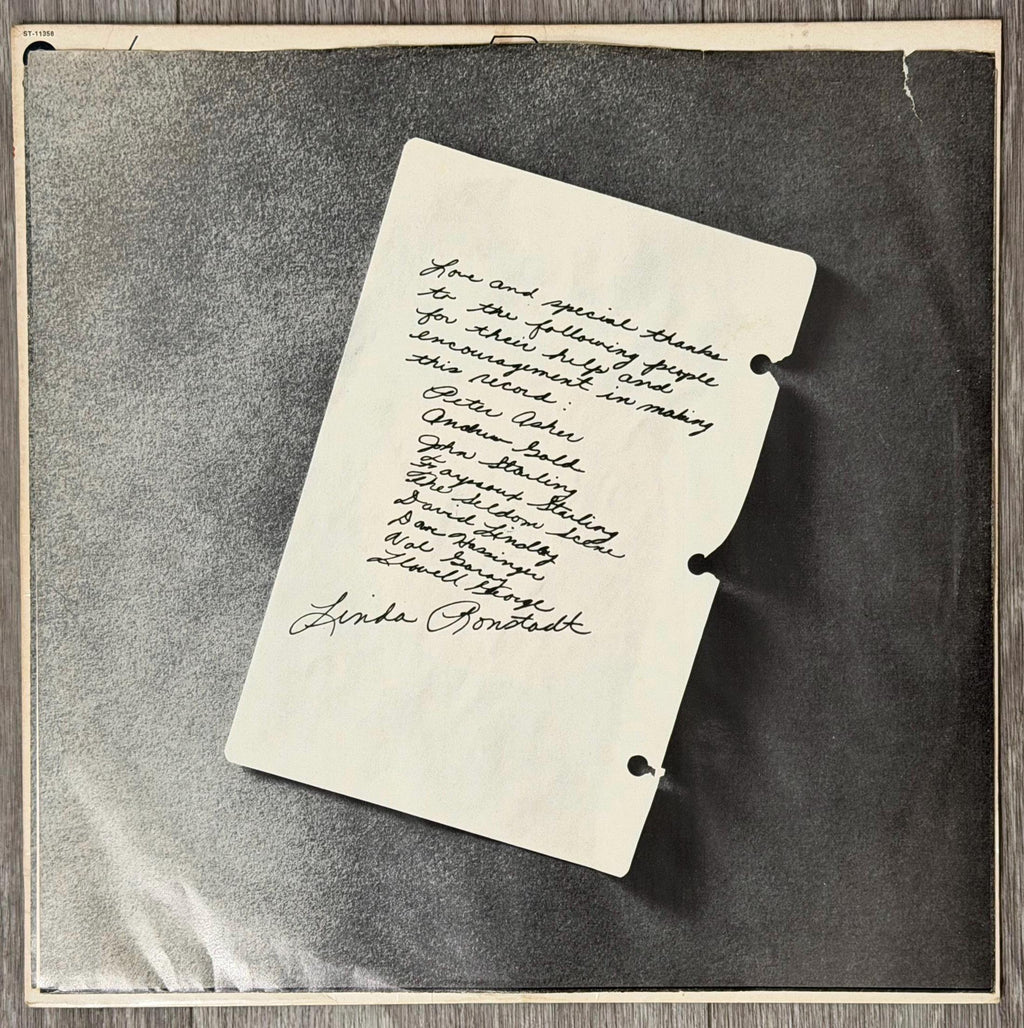 ST-11358
Love and special thanks
to the following people
for their help and
encouragement in making
this record:
Peter Asher
Andrew Gold
John Starling
Fayssoux Starling
The Seldom Scene
David Lindley
Dave Hassinger
Val Garay
Llowell George
Linda Ronstadt